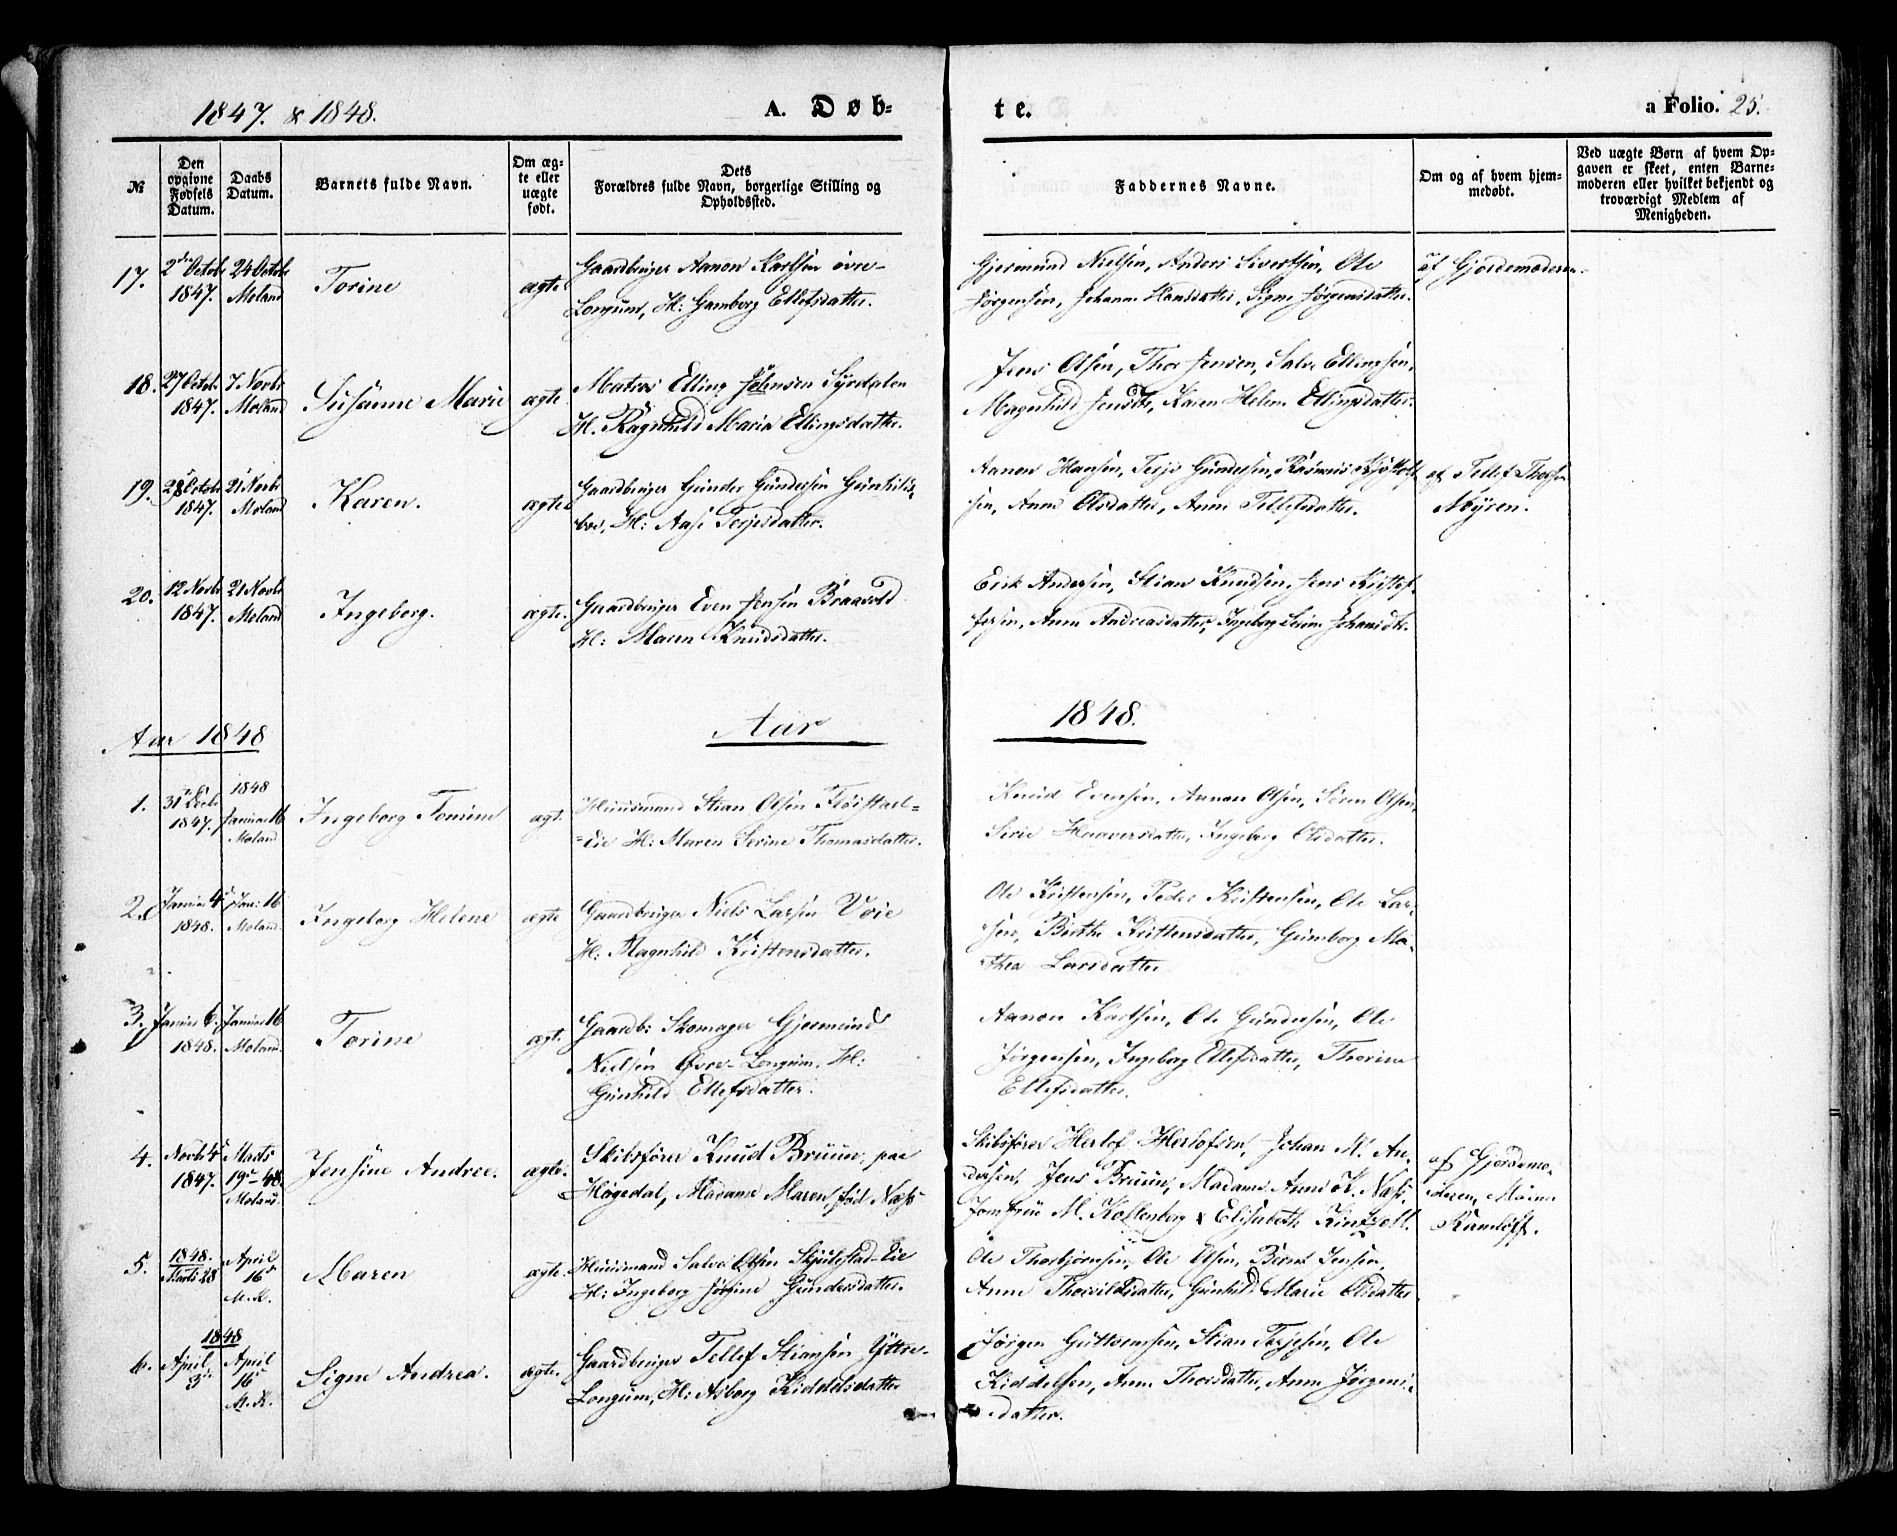 1847. & 1848.
A. Døb-
te.
a Folio. 25.
№
Den opgivne Fødsels Datum.
Daabs Datum.
Barnets fulde Navn.
Om ægte eller uægte født.
Dets
Forældres fulde Navn, borgerlige Stilling og
Opholdssted.
Faddernes Navne.
Om og af hvem hjem-
medøbt.
Ved uægte Børn af hvem Op-
gaven er skeet, enten Barne-
moderen eller hvilket bekjendt og
troværdigt Medlem af
Menigheden.
17. 2den Octobr 1847. 24 Octobr Moland Torine ægte
Gaardbruger Aanon Karlsen øvre-
Longum, H: Gunborg Ellefsdatter.
Gjermund Nielsen, Anders Sivertsen, Ole
Jørgensen, Johanne Hansdatter, Signe Jørgensdatter.
af Gjordemoderen.
18. 27 Octobr 1847. 7 Novbr Moland Susanne Marie ægte
Matros Elling Jensen Syrdalen
H. Ragnhild Maria Ellingsdatter.
Jens Olsen, Thor Jensen, Salve Ellingsen,
Magnhild Jensdtr, Karen Helene Ellingsdatter.
19. 28 Octobr 1847. 21 Novbr Moland Karen. ægte
Gaardbruger Gunder Gundersen Gunhilds-
boe, H: Aase Terjesdatter.
Aanon Hansen, Terje Gundersen, Rasmus
sen, Anne Olsdatter, Anne Tellefsdatter.
af Tellef Thorsen
Myren.
20. 12 Novbr 1847. 21 Novbr Moland Ingeborg. ægte.
Gaardbruger Even Jensen Braavold
H: Maren Knudsdatter.
Erik Andersen, Stian Knudsen, Jens Kristof-
fersen, Anne Andreasdatter, Ingeborg Johansdtr.
Aar 1848
Aar 1848.
1. 31te Decbr 1847. 1848 Januar 16 Moland Ingeborg Tomine ægt.
Huusmand Stian Olsen Fløistad-
-Eie H: Maren Serine Thomasdatter.
Knud Evensen, Aanon Olsen, Søren Olsen,
Sirie Haaversdatter, Ingeborg Olsdatter.
2. Januar 4 1848. Jan: 16 Moland Ingeborg Helene ægte
Gaardbruger Niels Larsen Voie
H: Magnhild Kristensdatter.
Ole Kristensen, Peder Kristensen, Ole Lar-
sen, Birthe Kristensdatter, Gunborg Ma-
thea Larsdatter
3. Januar 6. 1848. Januar 16 Moland. Torine ægt.
Gaardb: Skomager Gjermund
Nielsen Øvre-Longum, H:
Gunhild Ellefsdatter.
Aanon Karlsen, Ole Gundersen, Ole
Jørgensen, Ingeborg Ellefsdatter, Thorine
Ellefsdatter.
4. Novbr 4 1847. Marts 19-48. Moland Jensine Andree. ægte.
Skibsfører Knud Bruun, paa
Høgedal, Madame Maren, født Næss
Skibsfører Herlof Herlofsen, Johan M. An-
dersen, Jens Bruun, Madame Anne K. Næss,
Jomfrue M. Kallenberg & Elisabeth
af Gjordemo-
deren, Maren
5. 1848. Marts 28 April 16 M.K. Maren ægte.
Huusmand Salve Olsen Skjulestad-Eie
H: Ingeborg Jørgine Gundersdatter.
Ole Thorbjørnsen, Ole Olsen, Bernt Jensen,
Anne Thorvildsdatter, Gunhild Marie Olsdatter
6. 1848 April 3 April 16 M.K. Signe Andrea. ægte.
Gaardbruger Tellef Stiansen Yttre-
Longum, H: Asborg Kiddelsdatter
Jørgen Guttormsen, Stian Terjesen, Ole
Kiddelsen, Anne Thorsdatter, Anne Jørgens-
datter.